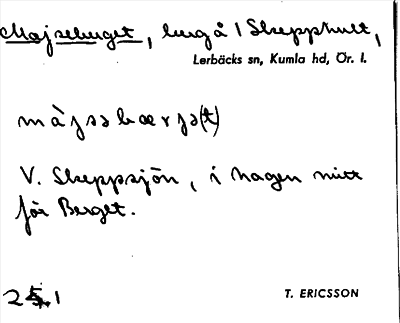 Majseberget, berg å 1 Skepphult,
Lerbäcks sn, Kumla hd, Ör. l.
màjsəbærjə(t)
V. Skeppsjön, i hagen mitt
för Berget.
T. ERICSSON